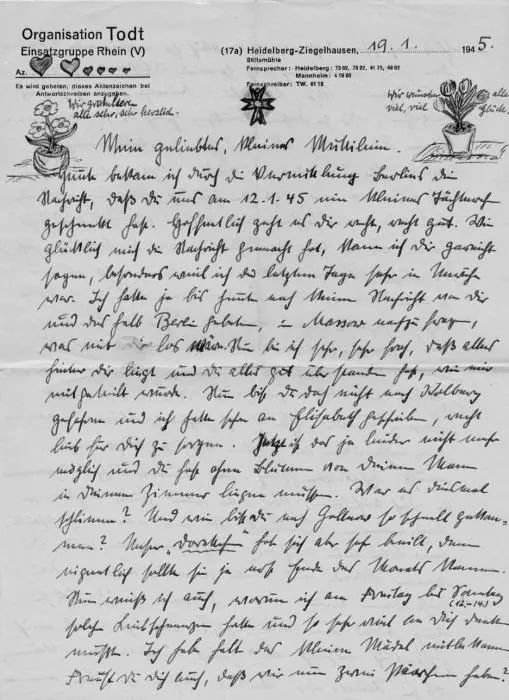 Organisation Todt
Einsatzgruppe Rhein (V)
Az.
Es wird gebeten, dieses Aktenzeichen bei
Antwortschreiben anzugeben.
(17a) Heidelberg-Ziegelhausen, 19.1. 1945.
Stiftsmühle
Fernsprecher: Heidelberg: 7362, 7392, 4175, 4962
Mannheim: 41665
Fernschreiber: TW. 6118
Wir gratulieren
alle sehr, sehr herzlich.
Wir wünschen alle
viel, viel Glück.
Mein geliebtes, kleines Muttilein.
Heute bekam ich durch die Vermittlung Berlins die
Nachricht, daß Du uns am 12.1.45 ein kleines Töchterch
geschenkt hast. Hoffentlich geht es Dir recht, recht gut. Wie
glücklich mich die Nachricht gemacht hat, kann ich Dir garnicht
sagen, besonders weil ich die letzten Tage sehr in Unruhe
war. Ich hatte ja bis heute noch keine Nachricht von Dir
und deshalb Berlin gebeten, in Massow nachzufragen,
was mit Dir los wäre. Nun bin ich sehr, sehr froh, daß alles
hinter Dir liegt und Du alles gut überstanden hast, wie mir
mitgeteilt wurde. Nun bist Du doch nicht nach Kolberg
gefahren und ich hatte schon an Elisabeth geschrieben, recht
lieb für Dich zu sorgen. Jetzt ist das ja leider nicht mehr
möglich und Du hast ohne Blumen von Deinem Mann
in Deinem Zimmer liegen müssen. War es diesmal
schlimm? Und wie bist Du nach Gollnow so schnell gekom-
men? Unser hat sich aber sehr beeilt, denn
eigentlich sollte sie ja erst Ende des Monats kommen.
Nun weiß ich auch, warum ich am Freitag bis Sonntag
(12.-14.)
solche Leibschmerzen hatte und so sehr viel an Dich denken
mußte. Ich habe halt das kleine Mädel mitbekommen
Freust Du Dich auch, daß wir nun zwei Pärchen haben?